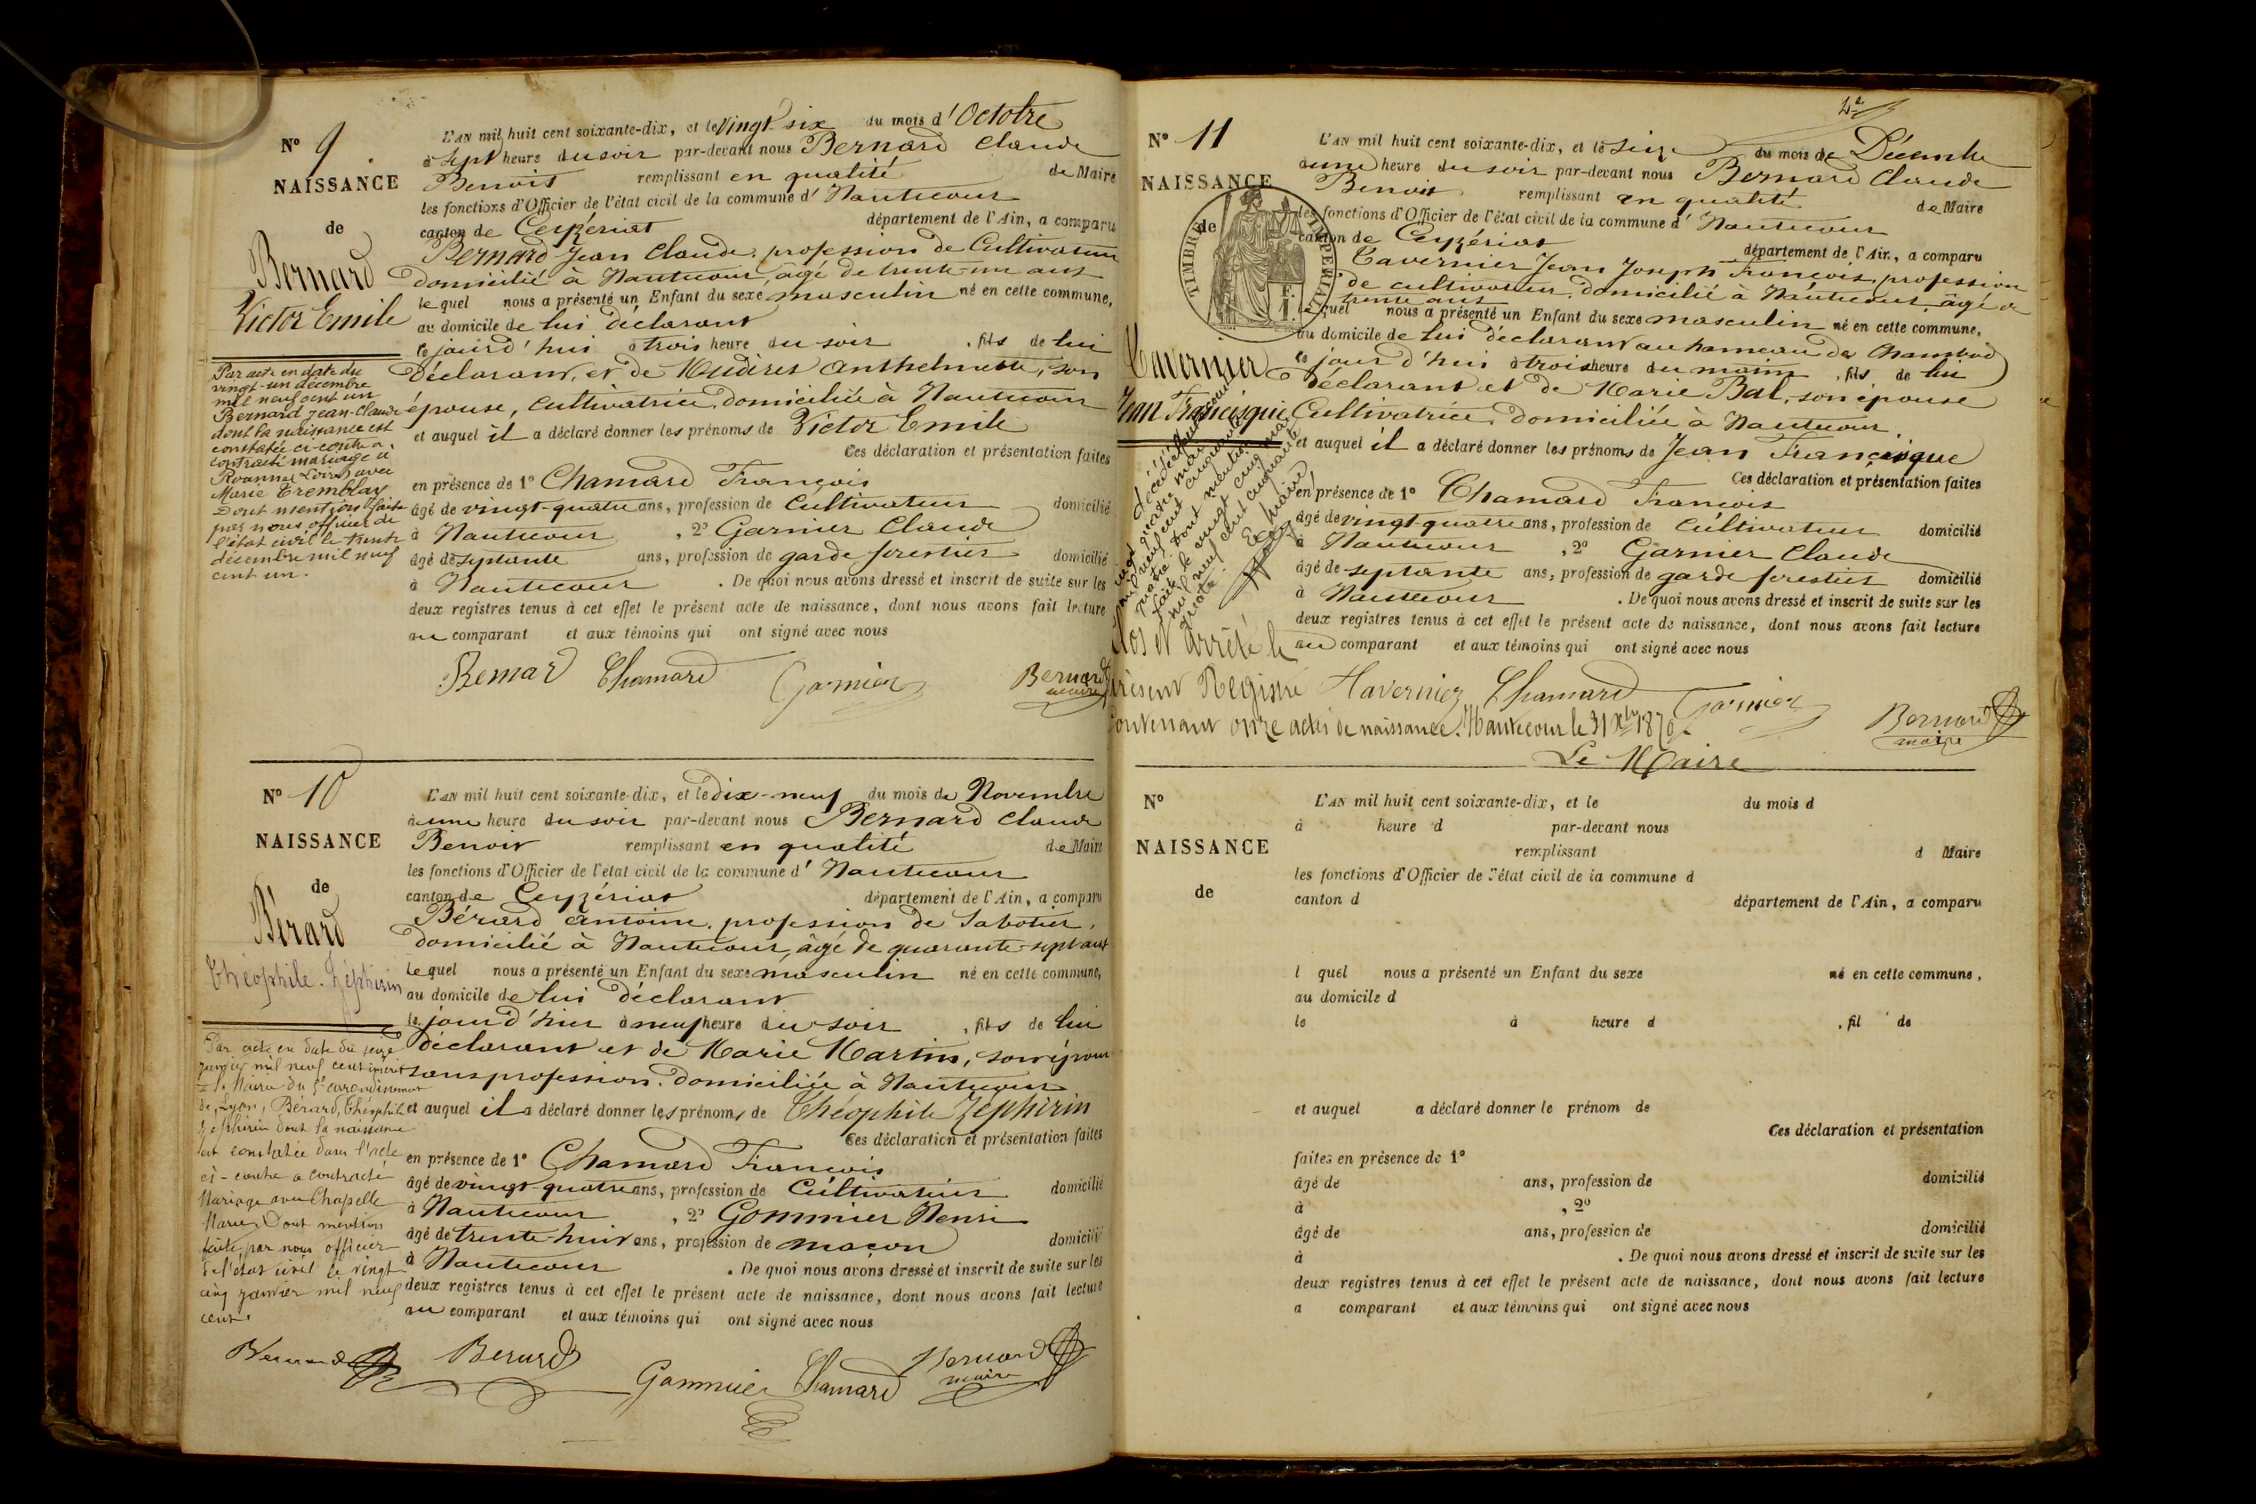 N° 9.
NAISSANCE
de
Bernard
Victor Emile
Par acte en date du
vingt-un décembre
mil neuf cent un
Bernard Jean-Claude
dont la naissance est
constatée ci-contre a
contracté mariage à
Roanne (Loire) avec
Marie Tremblay
Dont mention faite
par nous officier de
l'état civil le trente
décembre mil neuf
cent un.
L'AN mil huit cent soixante-dix, et le vingt-six du mois d'Octobre
à sept heure du soir par-devant nous Bernard Claude
Benoit remplissant en qualité de Maire
les fonctions d'Officier de l'état civil de la commune d'Hautecour
canton de Ceyzériat département de l'Ain, a comparu
Bernard Jean Claude, profession de Cultivateur
domicilié à Hautecour, âgé de trente-un ans
lequel nous a présenté un Enfant du sexe masculin né en cette commune,
au domicile de lui déclarant
le jourd'hui à trois heure du soir, fils de lui
déclarant, et de Anthelmette, son
épouse, cultivatrice, domiciliée à Hautecour
et auquel il a déclaré donner les prénoms de Victor Emile
Ces déclaration et présentation faites
en présence de 1° Chamard François
âgé de vingt-quatre ans, profession de Cultivateur domicilié
à Hautecour, 2° Garnier Claude
âgé de septante ans, profession de garde forestier domicilié
à Hautecour. De quoi nous avons dressé et inscrit de suite sur les
deux registres tenus à cet effet le présent acte de naissance, dont nous avons fait lecture
au comparant et aux témoins qui ont signé avec nous
Bernard Chamard Garnier Bernard
maire
N° 10
NAISSANCE
de
Bérard
Théophile. Zéphirin
Par acte en date du seize
janvier mil neuf cent
Mairie du 5e arrondissement
de Lyon, Bérard, Théophile
Zéphirin dont la naissance
est constatée dans l'acte
ci-contre a contracté
Mariage avec Chapelle
Marie, Dont mention
faite, par nous officier
de l'état civil le vingt
cinq janvier mil neuf
cent.
L'AN mil huit cent soixante-dix, et le dix-neuf du mois de Novembre
à une heure du soir par-devant nous Bernard Claude
Benoit remplissant en qualité de Maire
les fonctions d'Officier de l'état civil de la commune d'Hautecour
canton de Ceyzériat département de l'Ain, a comparu
Bérard Antoine, profession de Sabotier,
domicilié à Hautecour, âgé de quarante-sept ans
lequel nous a présenté un Enfant du sexe masculin né en cette commune,
au domicile de lui déclarant
le jour d'hier à neuf heure du soir, fils de lui
déclarant et de Marie Martin, son épouse
sans profession, domiciliée à Hautecour
et auquel il a déclaré donner les prénoms de Théophile Zéphirin
Ces déclaration et présentation faites
en présence de 1° Chamard François
âgé de vingt quatre ans, profession de Cultivateur domicilié
à Hautecour, 2° Gommier Henri
âgé de trente-huit ans, profession de maçon domicilié
à Hautecour. De quoi nous avons dressé et inscrit de suite sur les
deux registres tenus à cet effet le présent acte de naissance, dont nous avons fait lecture
au comparant et aux témoins qui ont signé avec nous
Bernard Berard Gommier Chamard Bernard
maire
N° 11
NAISSANCE
de
TIMBRE IMPÉRIAL
Tavernier
Jean Francisque
L'AN mil huit cent soixante-dix, et le seize du mois de Décembre
à une heure du soir par-devant nous Bernard Claude
Benoit remplissant en qualité de Maire
les fonctions d'Officier de l'état civil de la commune d'Hautecour
canton de Ceyzériat département de l'Ain, a comparu
Tavernier Jean Joseph François, profession
de cultivateur, domicilié à Hautecour, âgé de
trente ans
lequel nous a présenté un Enfant du sexe masculin né en cette commune,
au domicile de lui déclarant au hameau de Chambod
le jour d'hui à trois heure du matin, fils de lui
Déclarant et de Marie Bal, son épouse
Cultivatrice, domiciliée à Hautecour,
et auquel il a déclaré donner les prénoms de Jean Francisque
Ces déclaration et présentation faites
en présence de 1° Chamard François
âgé de vingt-quatre ans, profession de cultivateur domicilié
à Hautecour, 2° Garnier Claude
âgé de septante ans, profession de garde forestier domicilié
à Hautecour. De quoi nous avons dressé et inscrit de suite sur les
deux registres tenus à cet effet le présent acte de naissance, dont nous avons fait lecture
au comparant et aux témoins qui ont signé avec nous
Clos et arrêté le
présent Registre Tavernier Chamard Garnier
contenant onze actes de naissance. Hautecour le 31 Xbre 1870. Bernard
maire
Le Maire
N°
NAISSANCE
de
L'AN mil huit cent soixante-dix, et le du mois d
à heure d par-devant nous
remplissant d Maire
les fonctions d'Officier de l'état civil de la commune d
canton d département de l'Ain, a comparu
l quel nous a présenté un Enfant du sexe né en cette commune,
au domicile d
le à heure d , fil de
et auquel a déclaré donner le prénom de
Ces déclaration et présentation
faites en présence de 1°
âgé de ans, profession de domicilié
à , 2°
âgé de ans, profession de domicilié
à . De quoi nous avons dressé et inscrit de suite sur les
deux registres tenus à cet effet le présent acte de naissance, dont nous avons fait lecture
a comparant et aux témoins qui ont signé avec nous